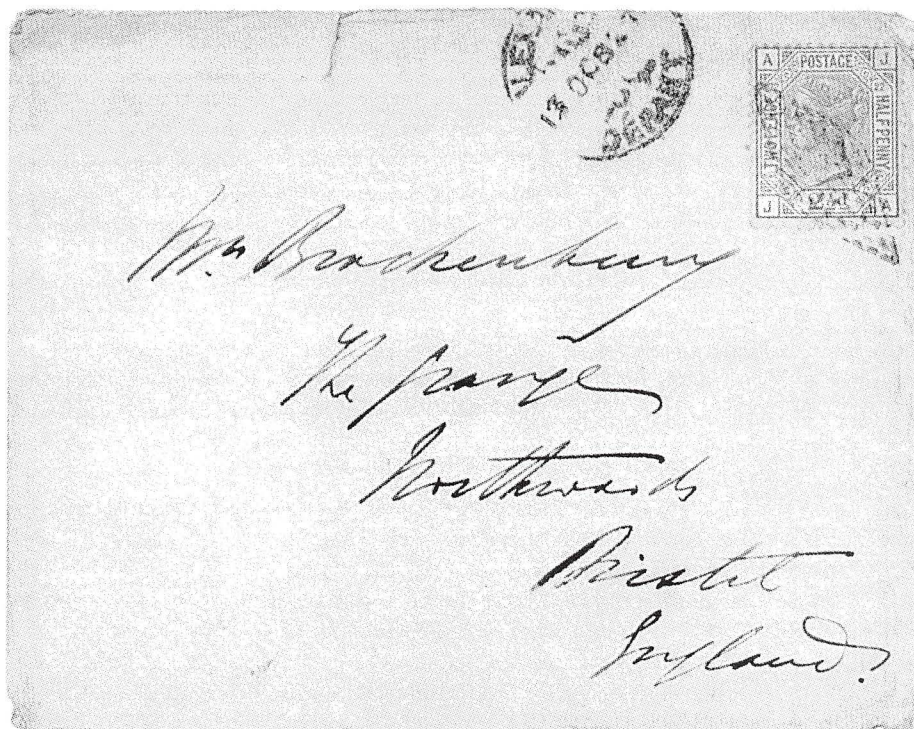 13 OC 82
DEPART
A POSTAGE J
TWO PENCE
HALFPENNY
J A
Mrs Brackenbury
The Grange
Northwoods
Bristol
England.